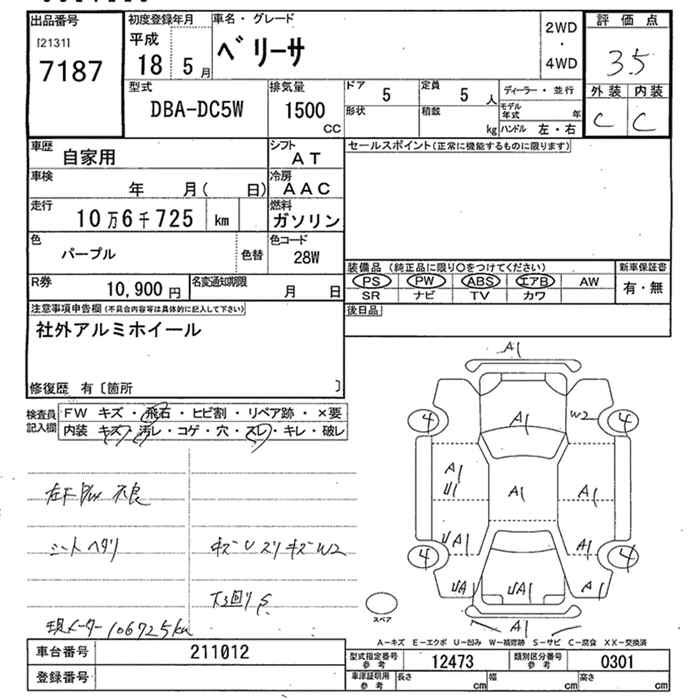 出品番号
[2131]
7187
初度登録年月
平成
18 5 月
車名・グレード
ベリーサ
2WD
・
4WD
評価点
3.5
外装 内装
C C
型式
DBA-DC5W
排気量
1500
CC
ドア 5
定員 5 人
ディーラー・並行
形状
積載 kg
モデル年式 年
ハンドル 左・右
車歴
自家用
シフト
AT
車検
年 月( 日)
冷房
AAC
走行
10万6千725 km
燃料
ガソリン
色
パープル
色替
色コード
28W
R券
10,900 円
名変通知期限
月 日
セールスポイント(正常に機能するものに限ります)
装備品 (純正品に限り○をつけてください)
新車保証書
PS PW ABS エアB AW
有・無
SR ナビ TV カワ
後日品
注意事項申告欄(不具合内容等は具体的に記入して下さい)
社外アルミホイール
修復歴 有〔箇所 〕
検査員記入欄
FW キズ・飛石・ヒビ割・リペア跡・×要
内装 キズ・汚レ・コゲ・穴・スレ・キレ・破レ
シートヘタリ
現メーター106725km
不良
キズU スリキズW2
下回りS
A1
4
A1
W2
4
A1
U1
A1
A1
UA1
A1
4
4
UA1
UA1
A1
A1
スペア
A−キズ E−エクボ U−凹み W−補修跡 S−サビ C−腐食 XX−交換済
車台番号
211012
登録番号
型式指定番号
参考
12473
類別区分番号
参考
0301
車庫証明用
参考
長さ cm
幅 cm
高さ cm